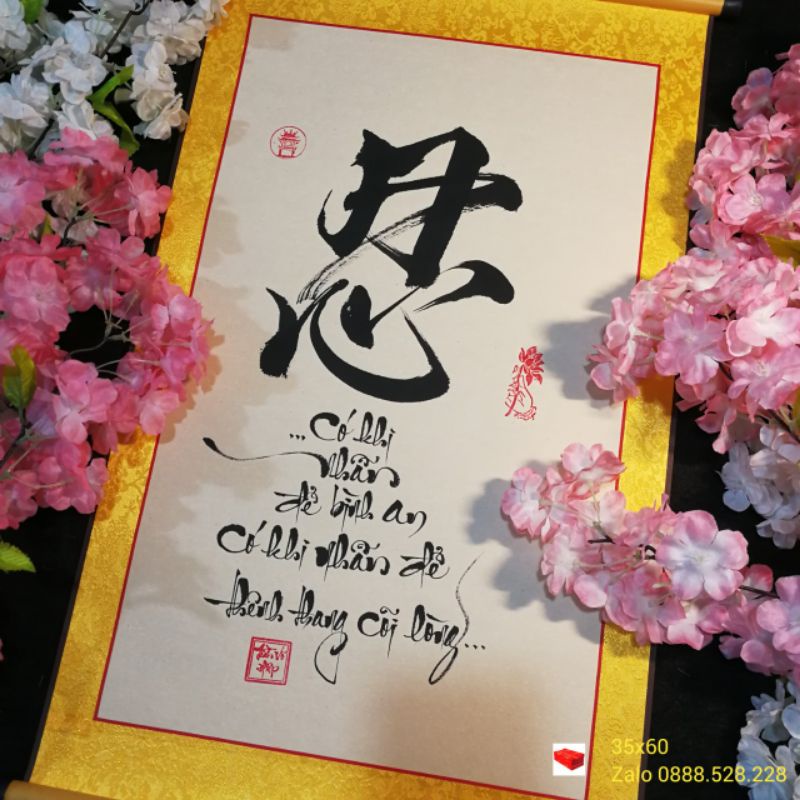 忍
...Có khi
nhẫn
để bình an
Có khi nhẫn để
thênh thang cõi lòng...
35x60
Zalo 0888.528.228